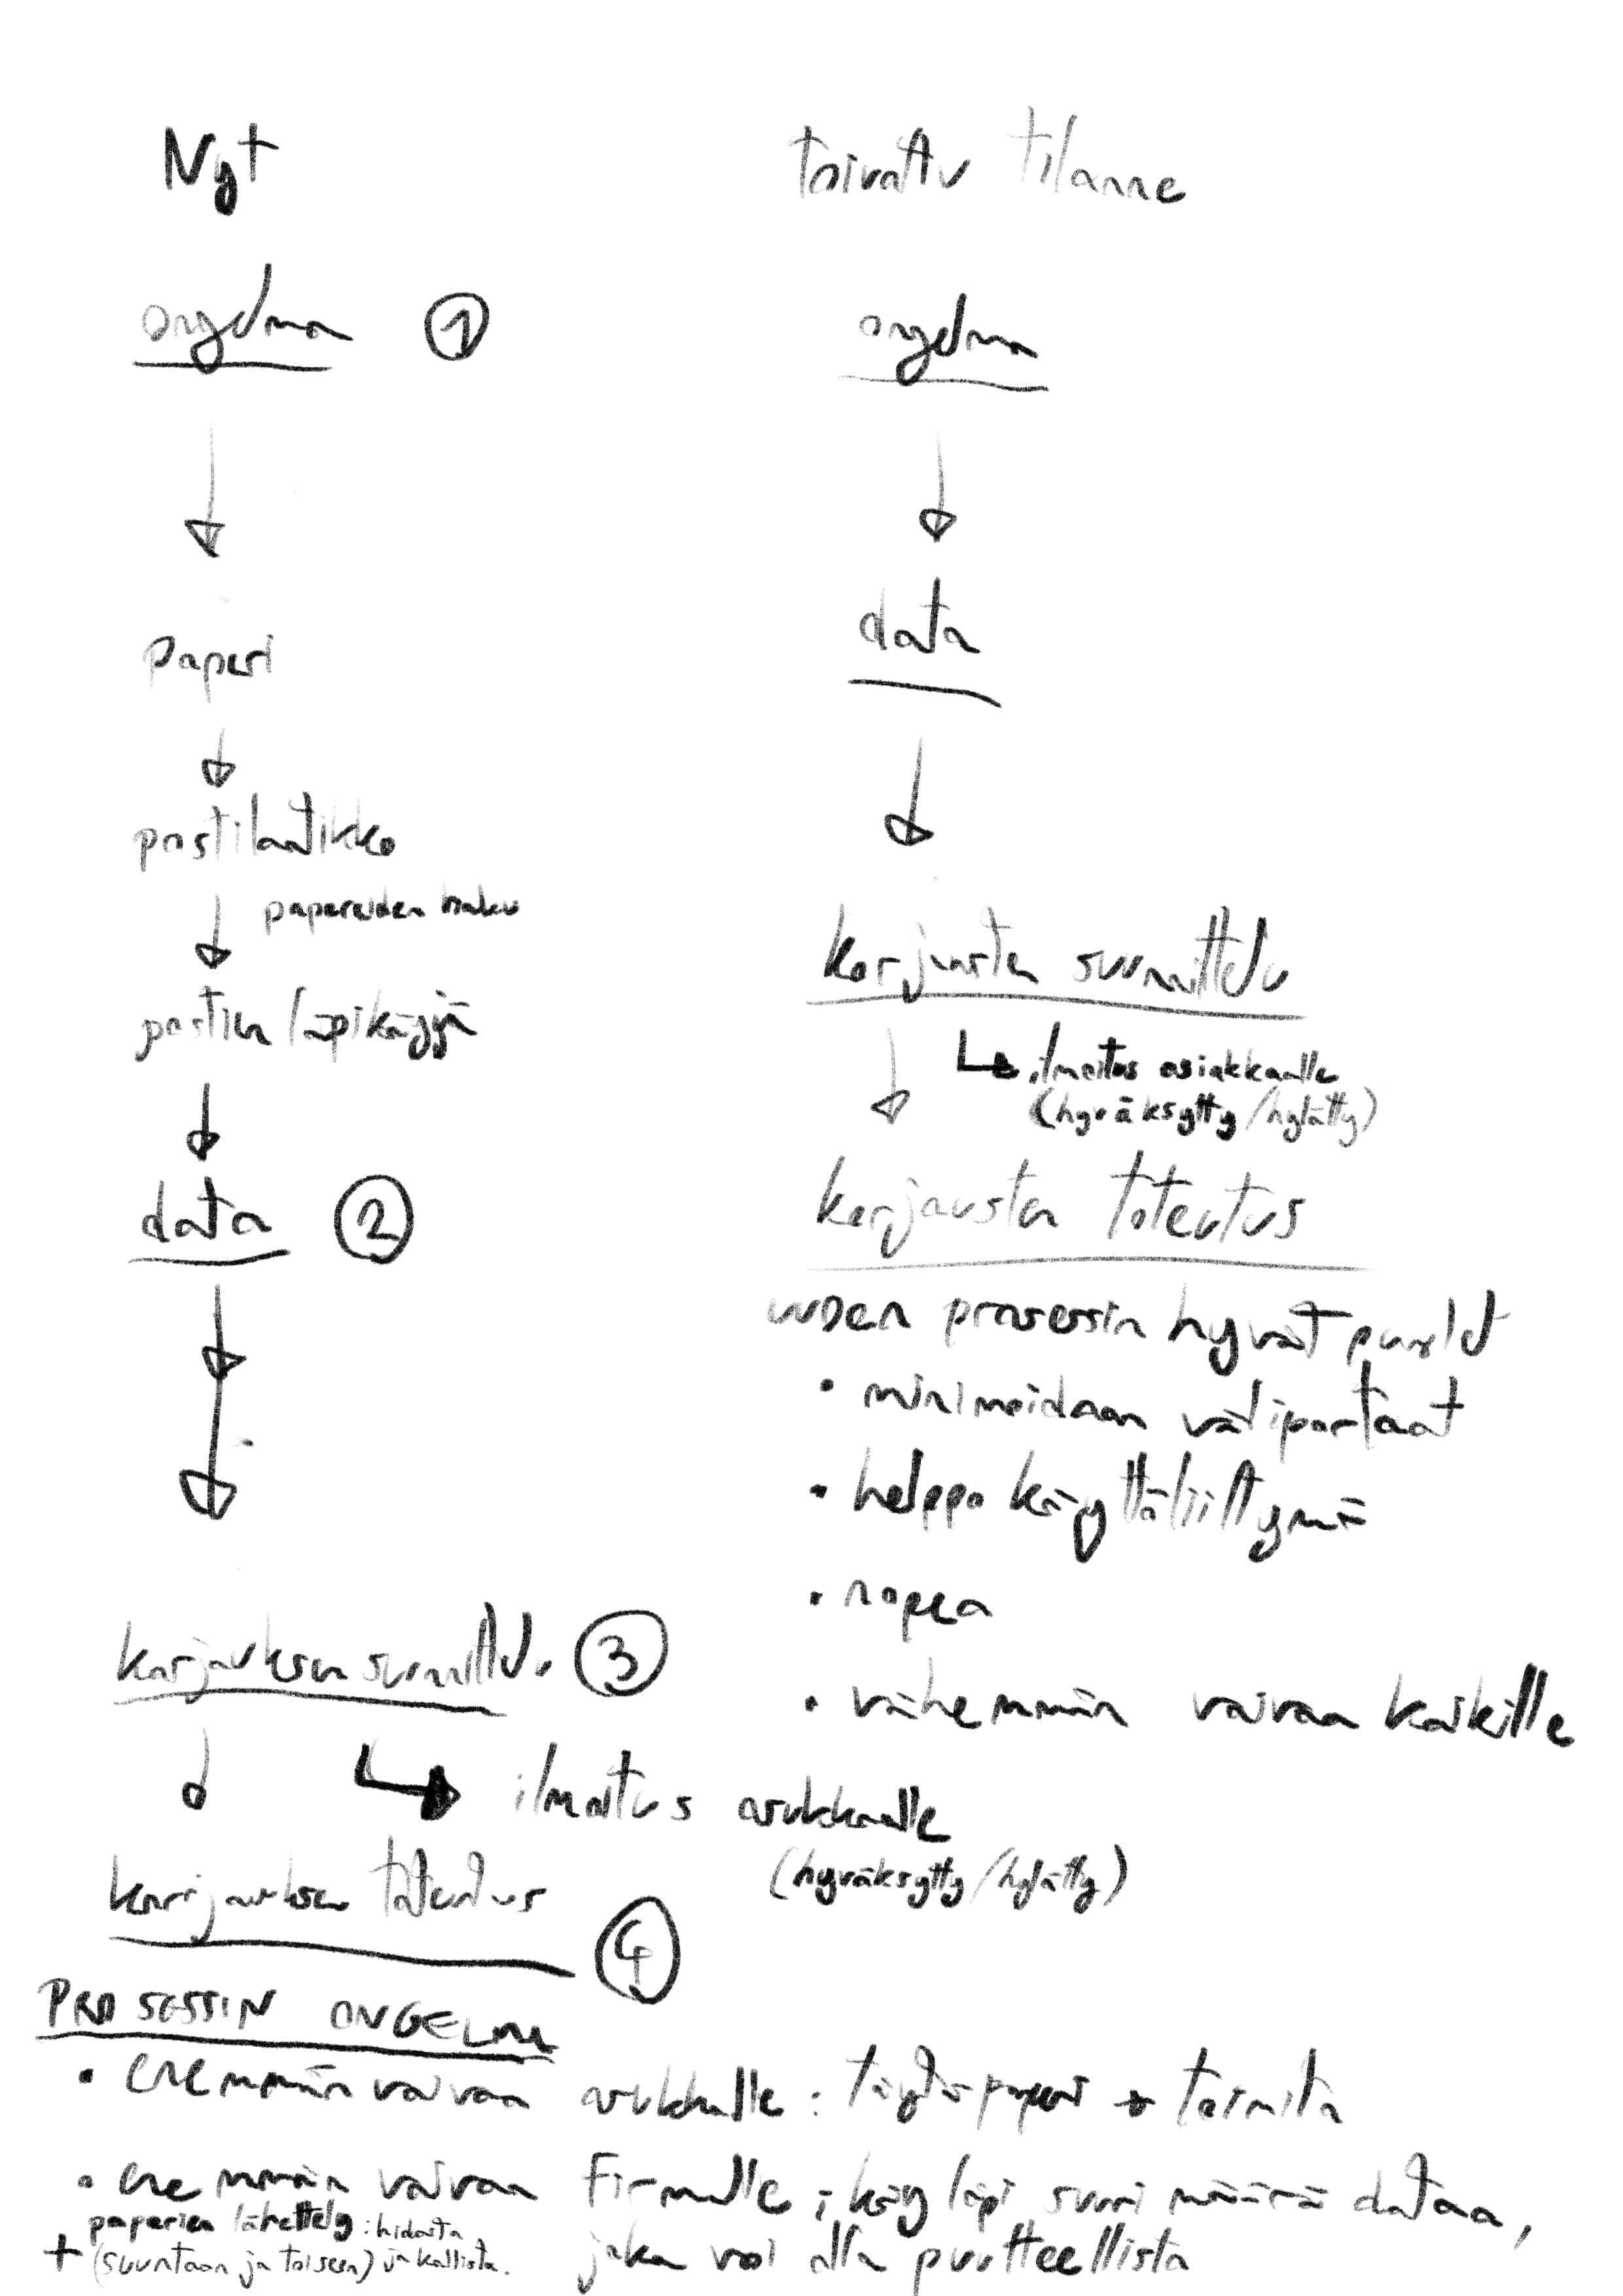 Nyt
ongelma 1
paperi
postilaatikko
papereiden haku
postin läpikäyjä
data 2
korjauksen suunnittelu 3
ilmoitus asukkaalle
(hyväksytty/hylätty)
korjauksen toteutus
4
PROSESSIN ONGELMA
• enemmän vaivaa asukkalle: täytä paperi + toimita
• enemmän vaivaa firmalle; käy läpi suuri määrä dataa,
joka voi olla puutteellista
+ paperien lähettely: hidasta
(suuntaan ja toiseen) ja kallista.
toivottu tilanne
ongelma
data
korjausten suunnittelu
ilmoitus asiakkaalle
(hyväksytty/hylätty)
korjausten toteutus
uuden prosessin hyvät puolet
• minimoidaan väliportaat
• helppo käyttöliittymä
• nopea
• vähemmän vaivaa kaikille